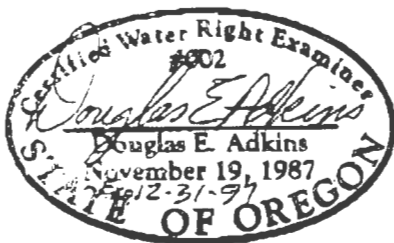 Certified Water Right Examiner
#002
Douglas E Adkins
Douglas E. Adkins
November 19, 1987
12-31-97
STATE OF OREGON